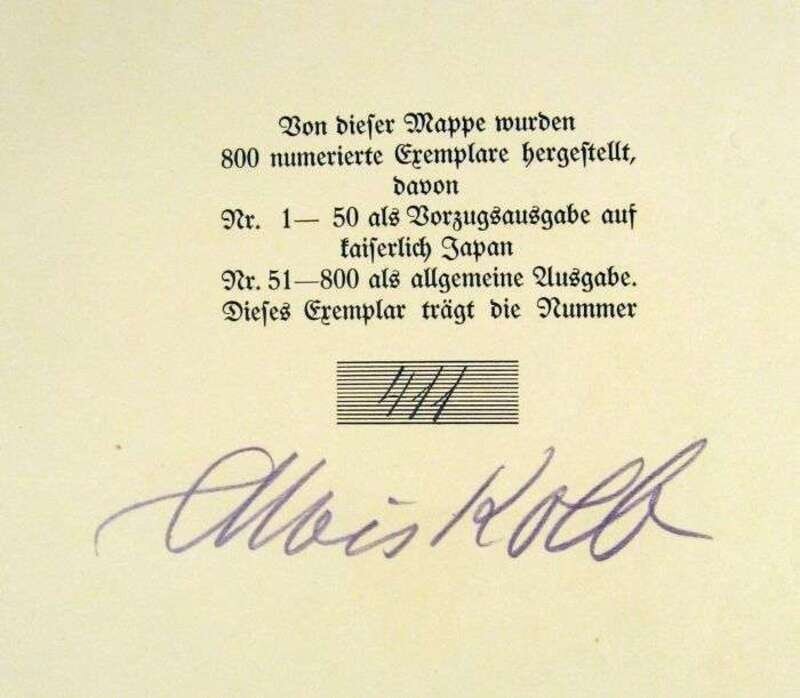 Von dieser Mappe wurden
800 numerierte Exemplare hergestellt,
davon
Nr. 1— 50 als Vorzugsausgabe auf
kaiserlich Japan
Nr. 51—800 als allgemeine Ausgabe.
Dieses Exemplar trägt die Nummer
411
Alois Kolb